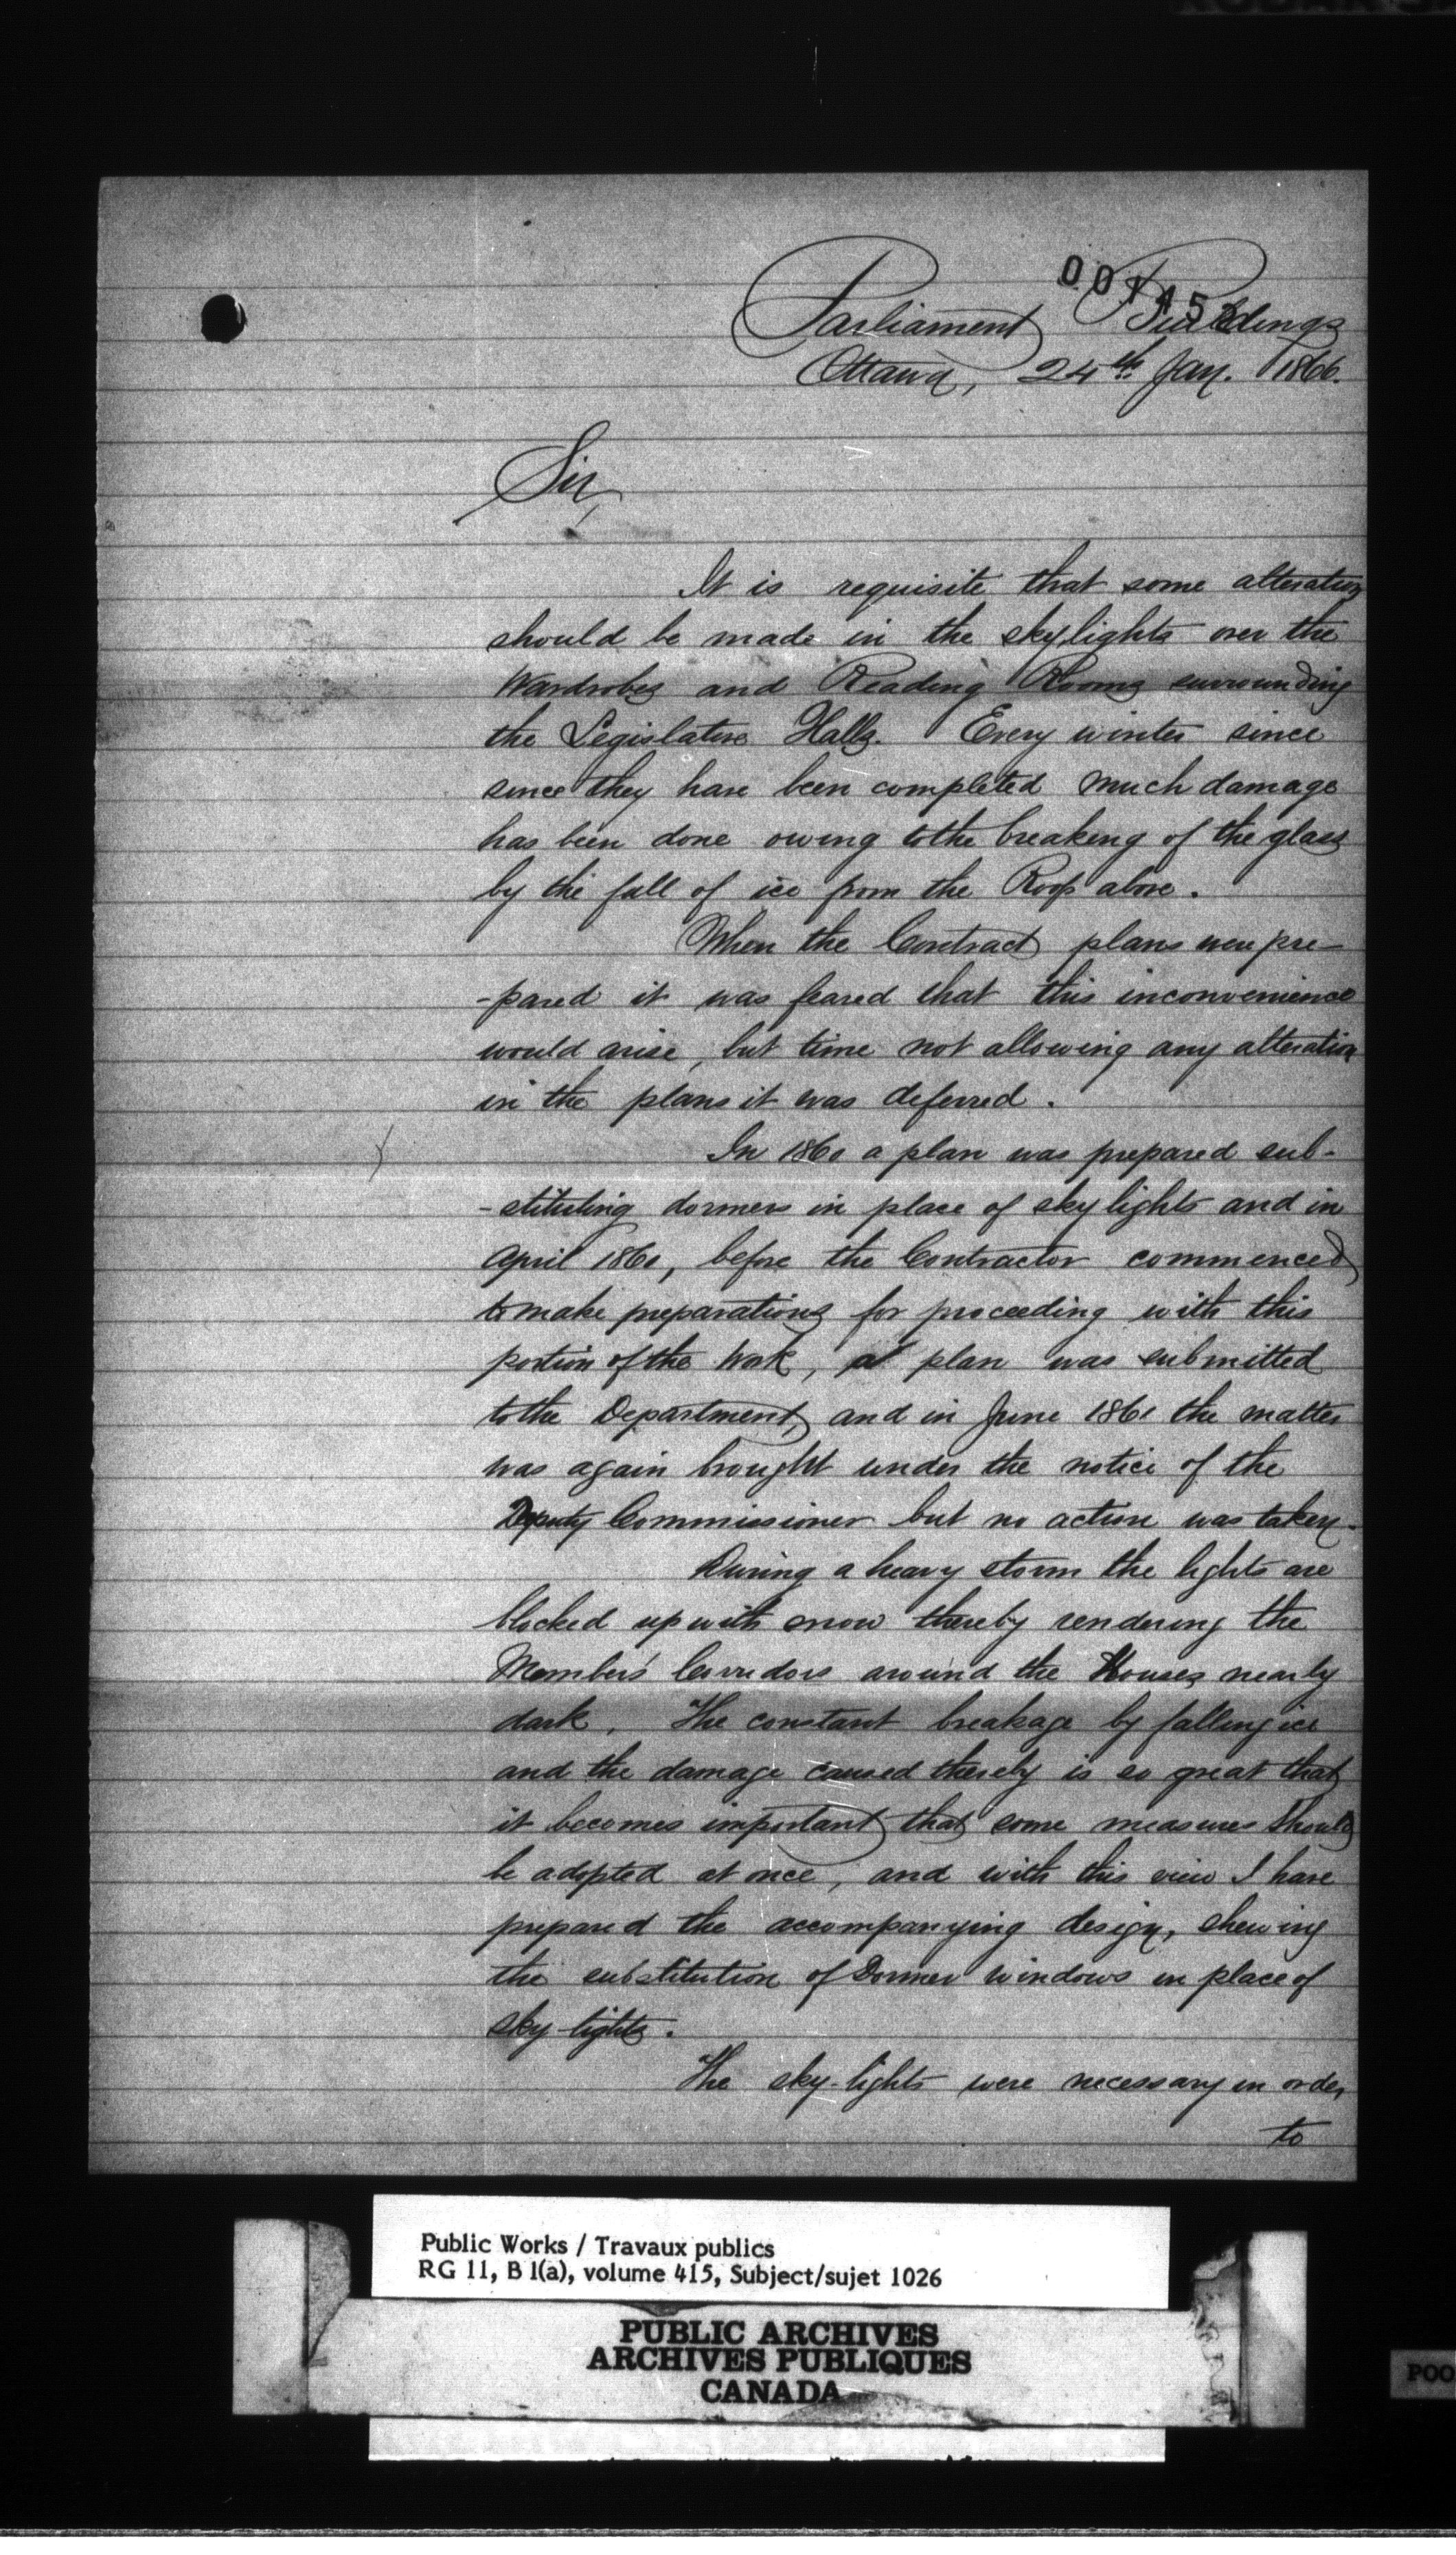 Parliament Buildings
Ottawa, 24th Jan. 1866.
Sir,
It is requisite that some alteration
should be made in the skylights over the
Wardrobes and Reading Rooms surrounding
the Legislative Halls. Every winter since
since they have been completed much damage
has been done owing to the breaking of the glass
by the fall of ice from the Roof above.
When the Contract plans were pre-
-pared it was feared that this inconvenience
would arise, but time not allowing any alteration
in the plans it was deferred.
In 1860 a plan was prepared sub-
-stituting dormers in place of sky lights and in
April 1861, before the Contractor commenced
to make preparations for proceeding with this
portion of the Work, a plan was submitted
to the Department, and in June 1861 the matter
was again brought under the notice of the
Deputy Commissioner but no action was taken.
During a heavy storm the lights are
blocked up with snow thereby rendering the
Members' Corridors around the Houses nearly
dark. The constant breakage by falling ice
and the damage caused thereby is so great that
it becomes important that some measures should
be adopted at once, and with this view I have
prepared the accompanying design, shewing
the substitution of Dormer windows in place of
sky-lights.
The sky-lights were necessary in order
to
Public Works / Travaux publics
RG 11, B 1(a), volume 415, Subject/sujet 1026
PUBLIC ARCHIVES
ARCHIVES PUBLIQUES
CANADA